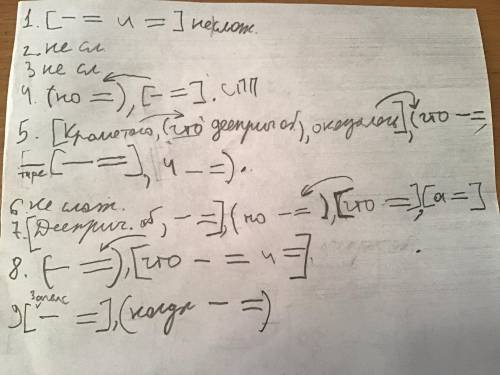 1. [– = и =] неслож.
2. не сл
3 не сл
4. (но =), [– =]. СПП
5. [Кроме того, (что дееприч об), оказалось], (что – =,
[– =], и – =).
6 не слож.
7. [Дееприч. об, – =], (но – =), [что =], [а =]
8. (– =), [что – = и =].
9 [– =], (когда – =)